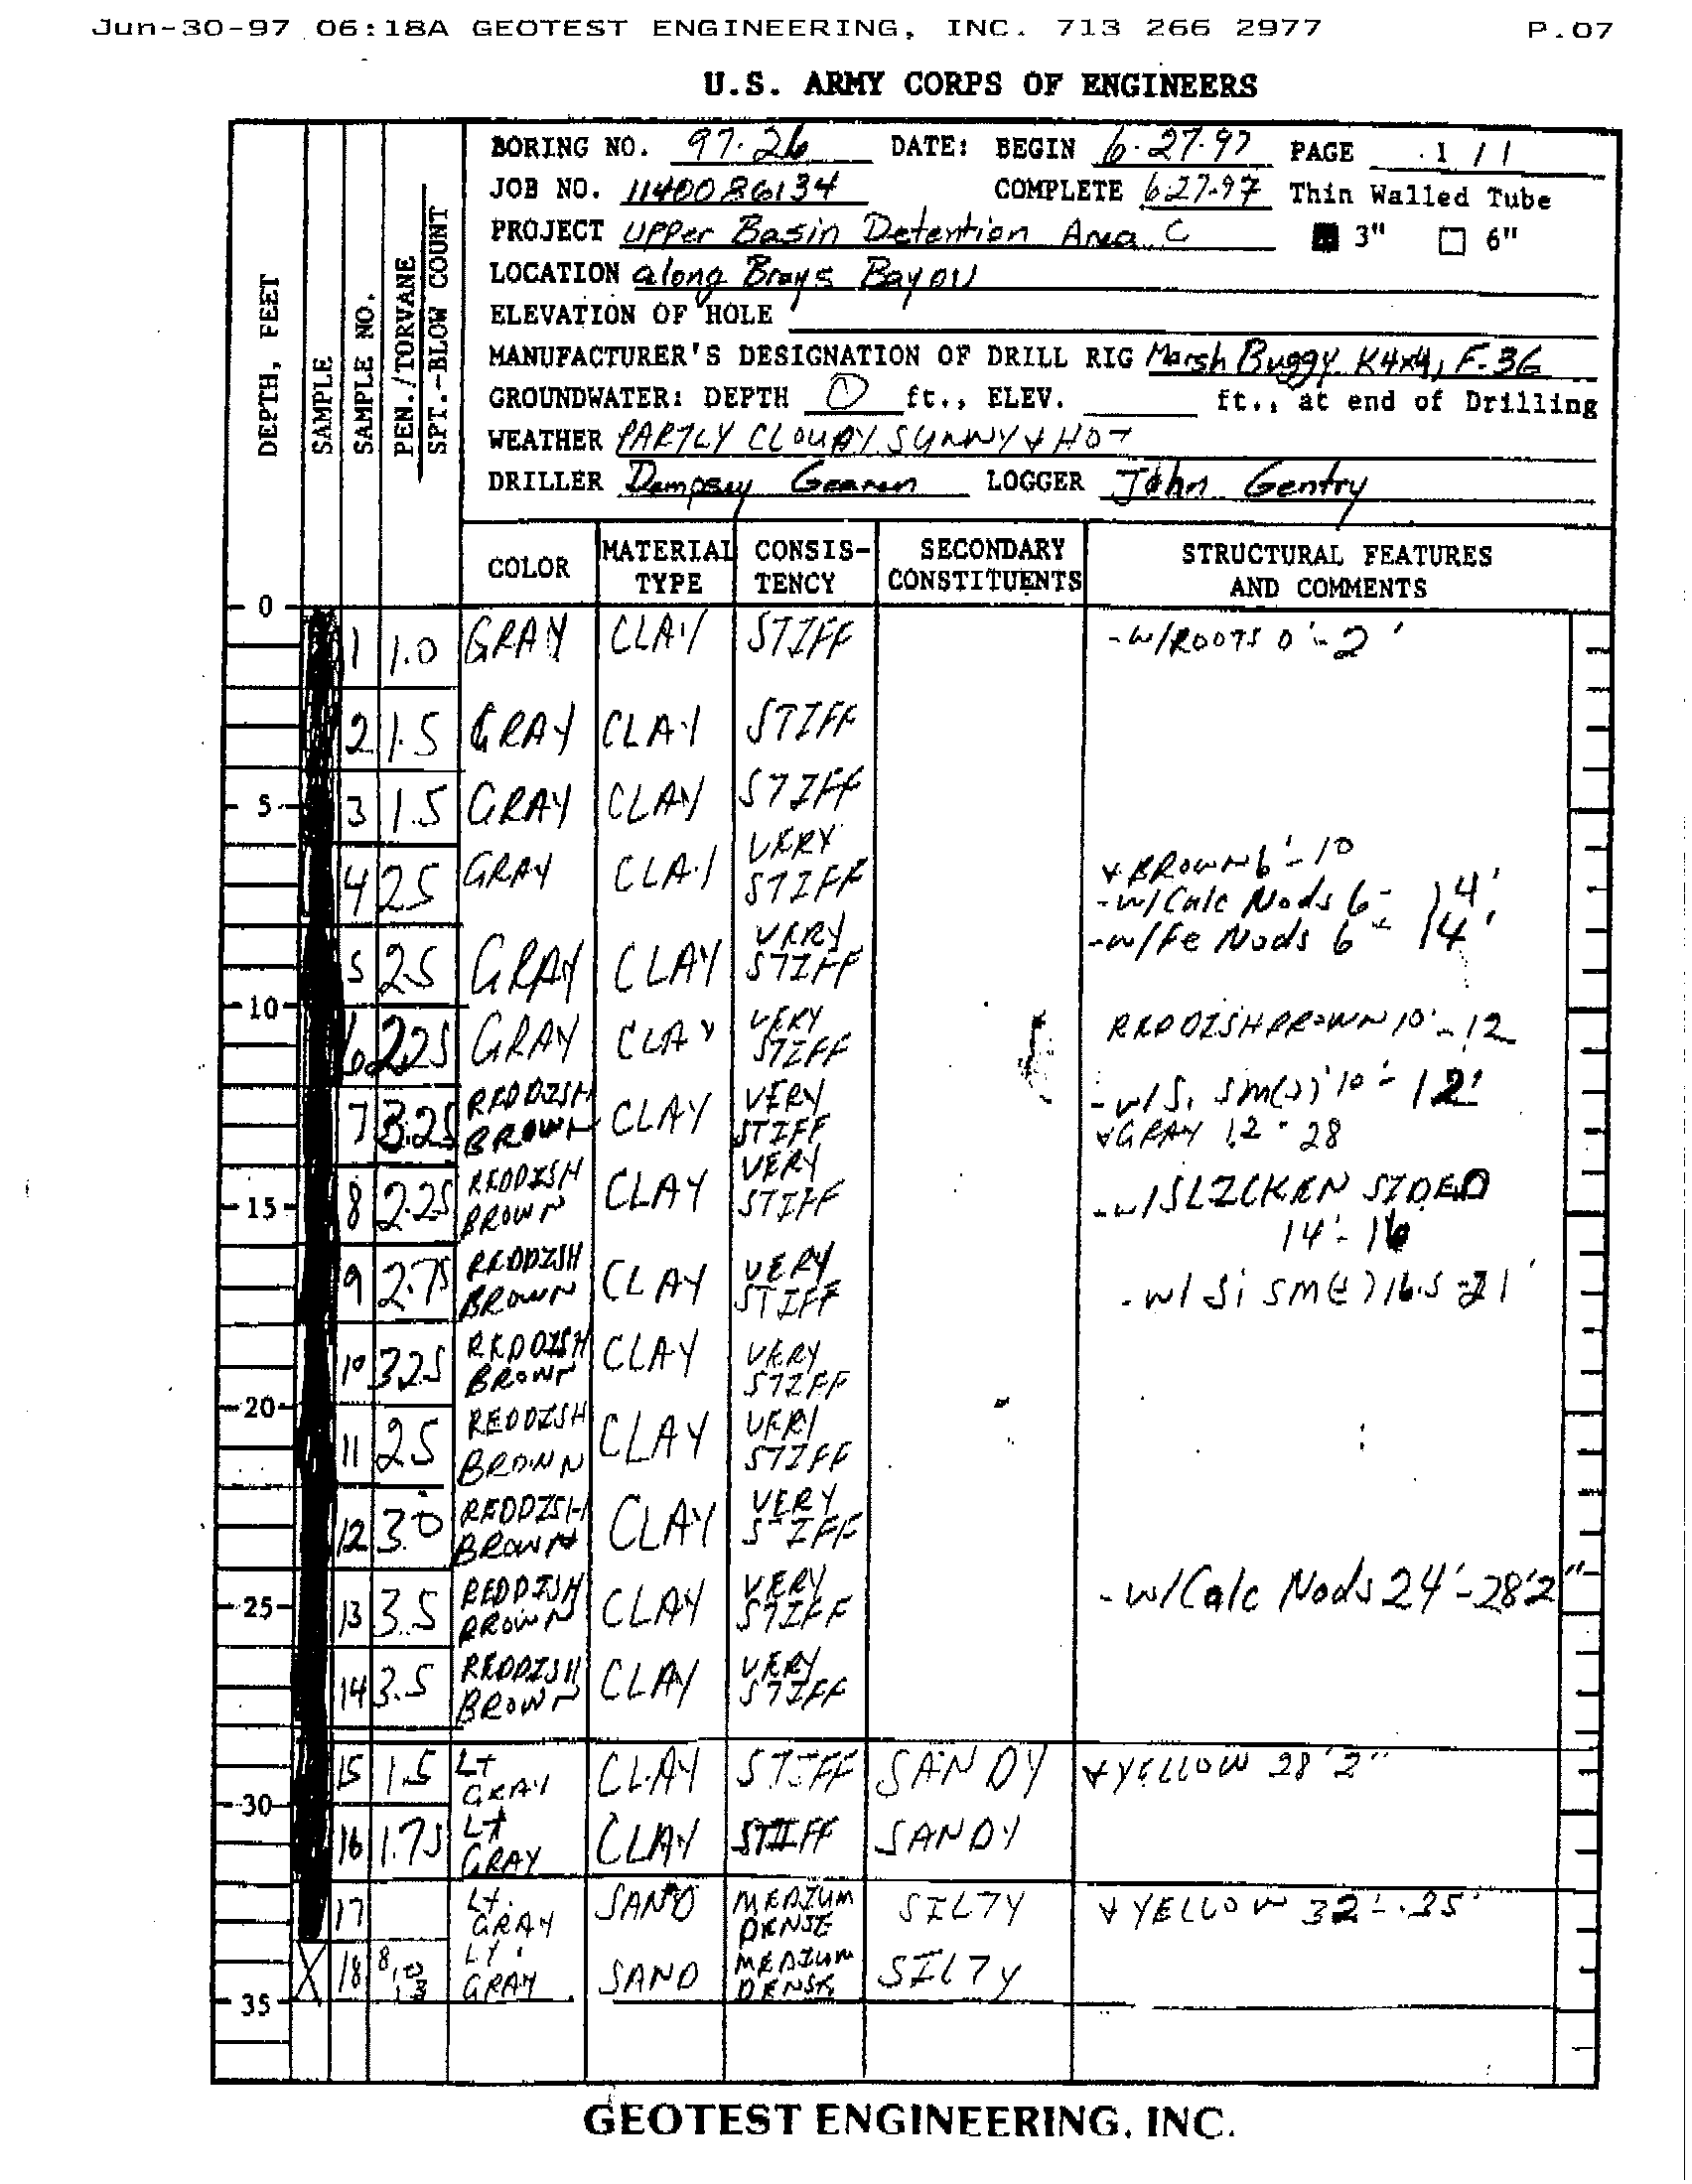 Jun-30-97 06:18A GEOTEST ENGINEERING, INC. 713 266 2977 P.07
U.S. ARMY CORPS OF ENGINEERS
BORING NO. 97-26 DATE: BEGIN 6-27-97 PAGE 1 / 1
JOB NO. 1140086134 COMPLETE 6-27-97 Thin Walled Tube
PROJECT Upper Basin Detention Area C 3" 6"
LOCATION along Brays Bayou
ELEVATION OF HOLE
MANUFACTURER'S DESIGNATION OF DRILL RIG Marsh Buggy K4x4, F-36
GROUNDWATER: DEPTH 0 ft., ELEV. ft., at end of Drilling
WEATHER PARTLY CLOUDY SUNNY & HOT
DRILLER Dempsey LOGGER John Gentry
DEPTH, FEET
SAMPLE
SAMPLE NO.
PEN./TORVANE
SPT.-BLOW COUNT
COLOR MATERIAL TYPE CONSIS-TENCY SECONDARY CONSTITUENTS STRUCTURAL FEATURES AND COMMENTS
0
1 1.0 GRAY CLAY STIFF -W/ROOTS 0'-2'
2 1.5 GRAY CLAY STIFF
5 3 1.5 GRAY CLAY STIFF
4 25 GRAY CLAY VERY STIFF & BROWN 6'-10
-w/Calc Nods 6-14'
-w/Fe Nods 6-14'
5 25 GRAY CLAY VERY STIFF
10
6 2.25 GRAY CLAY VERY STIFF REDDISH BROWN 10'-12
-w/Si SM(S) 10'-12'
7 3.25 REDDISH BROWN CLAY VERY STIFF & GRAY 12-28
15 8 2.25 REDDISH BROWN CLAY VERY STIFF -w/SLICKEN SIDED
14'-16
9 2.75 REDDISH BROWN CLAY VERY STIFF -w/ Si SM(S) 16.5-21'
10 325 REDDISH BROWN CLAY VERY STIFF
20
11 25 REDDISH BROWN CLAY VERY STIFF
12 3.0 REDDISH BROWN CLAY VERY STIFF
25 13 3.5 REDDISH BROWN CLAY VERY STIFF -w/Calc Nods 24'-28'2"
14 3.5 REDDISH BROWN CLAY VERY STIFF
15 1.5 LT GRAY CLAY STIFF SANDY & YELLOW 28'2"
30
16 1.75 LT GRAY CLAY STIFF SANDY
17 Lt. GRAY SAND MEDIUM DENSE SILTY & YELLOW 32'-35'
18 8, 13 LT. GRAY SAND MEDIUM DENSE SILTY
35
GEOTEST ENGINEERING, INC.